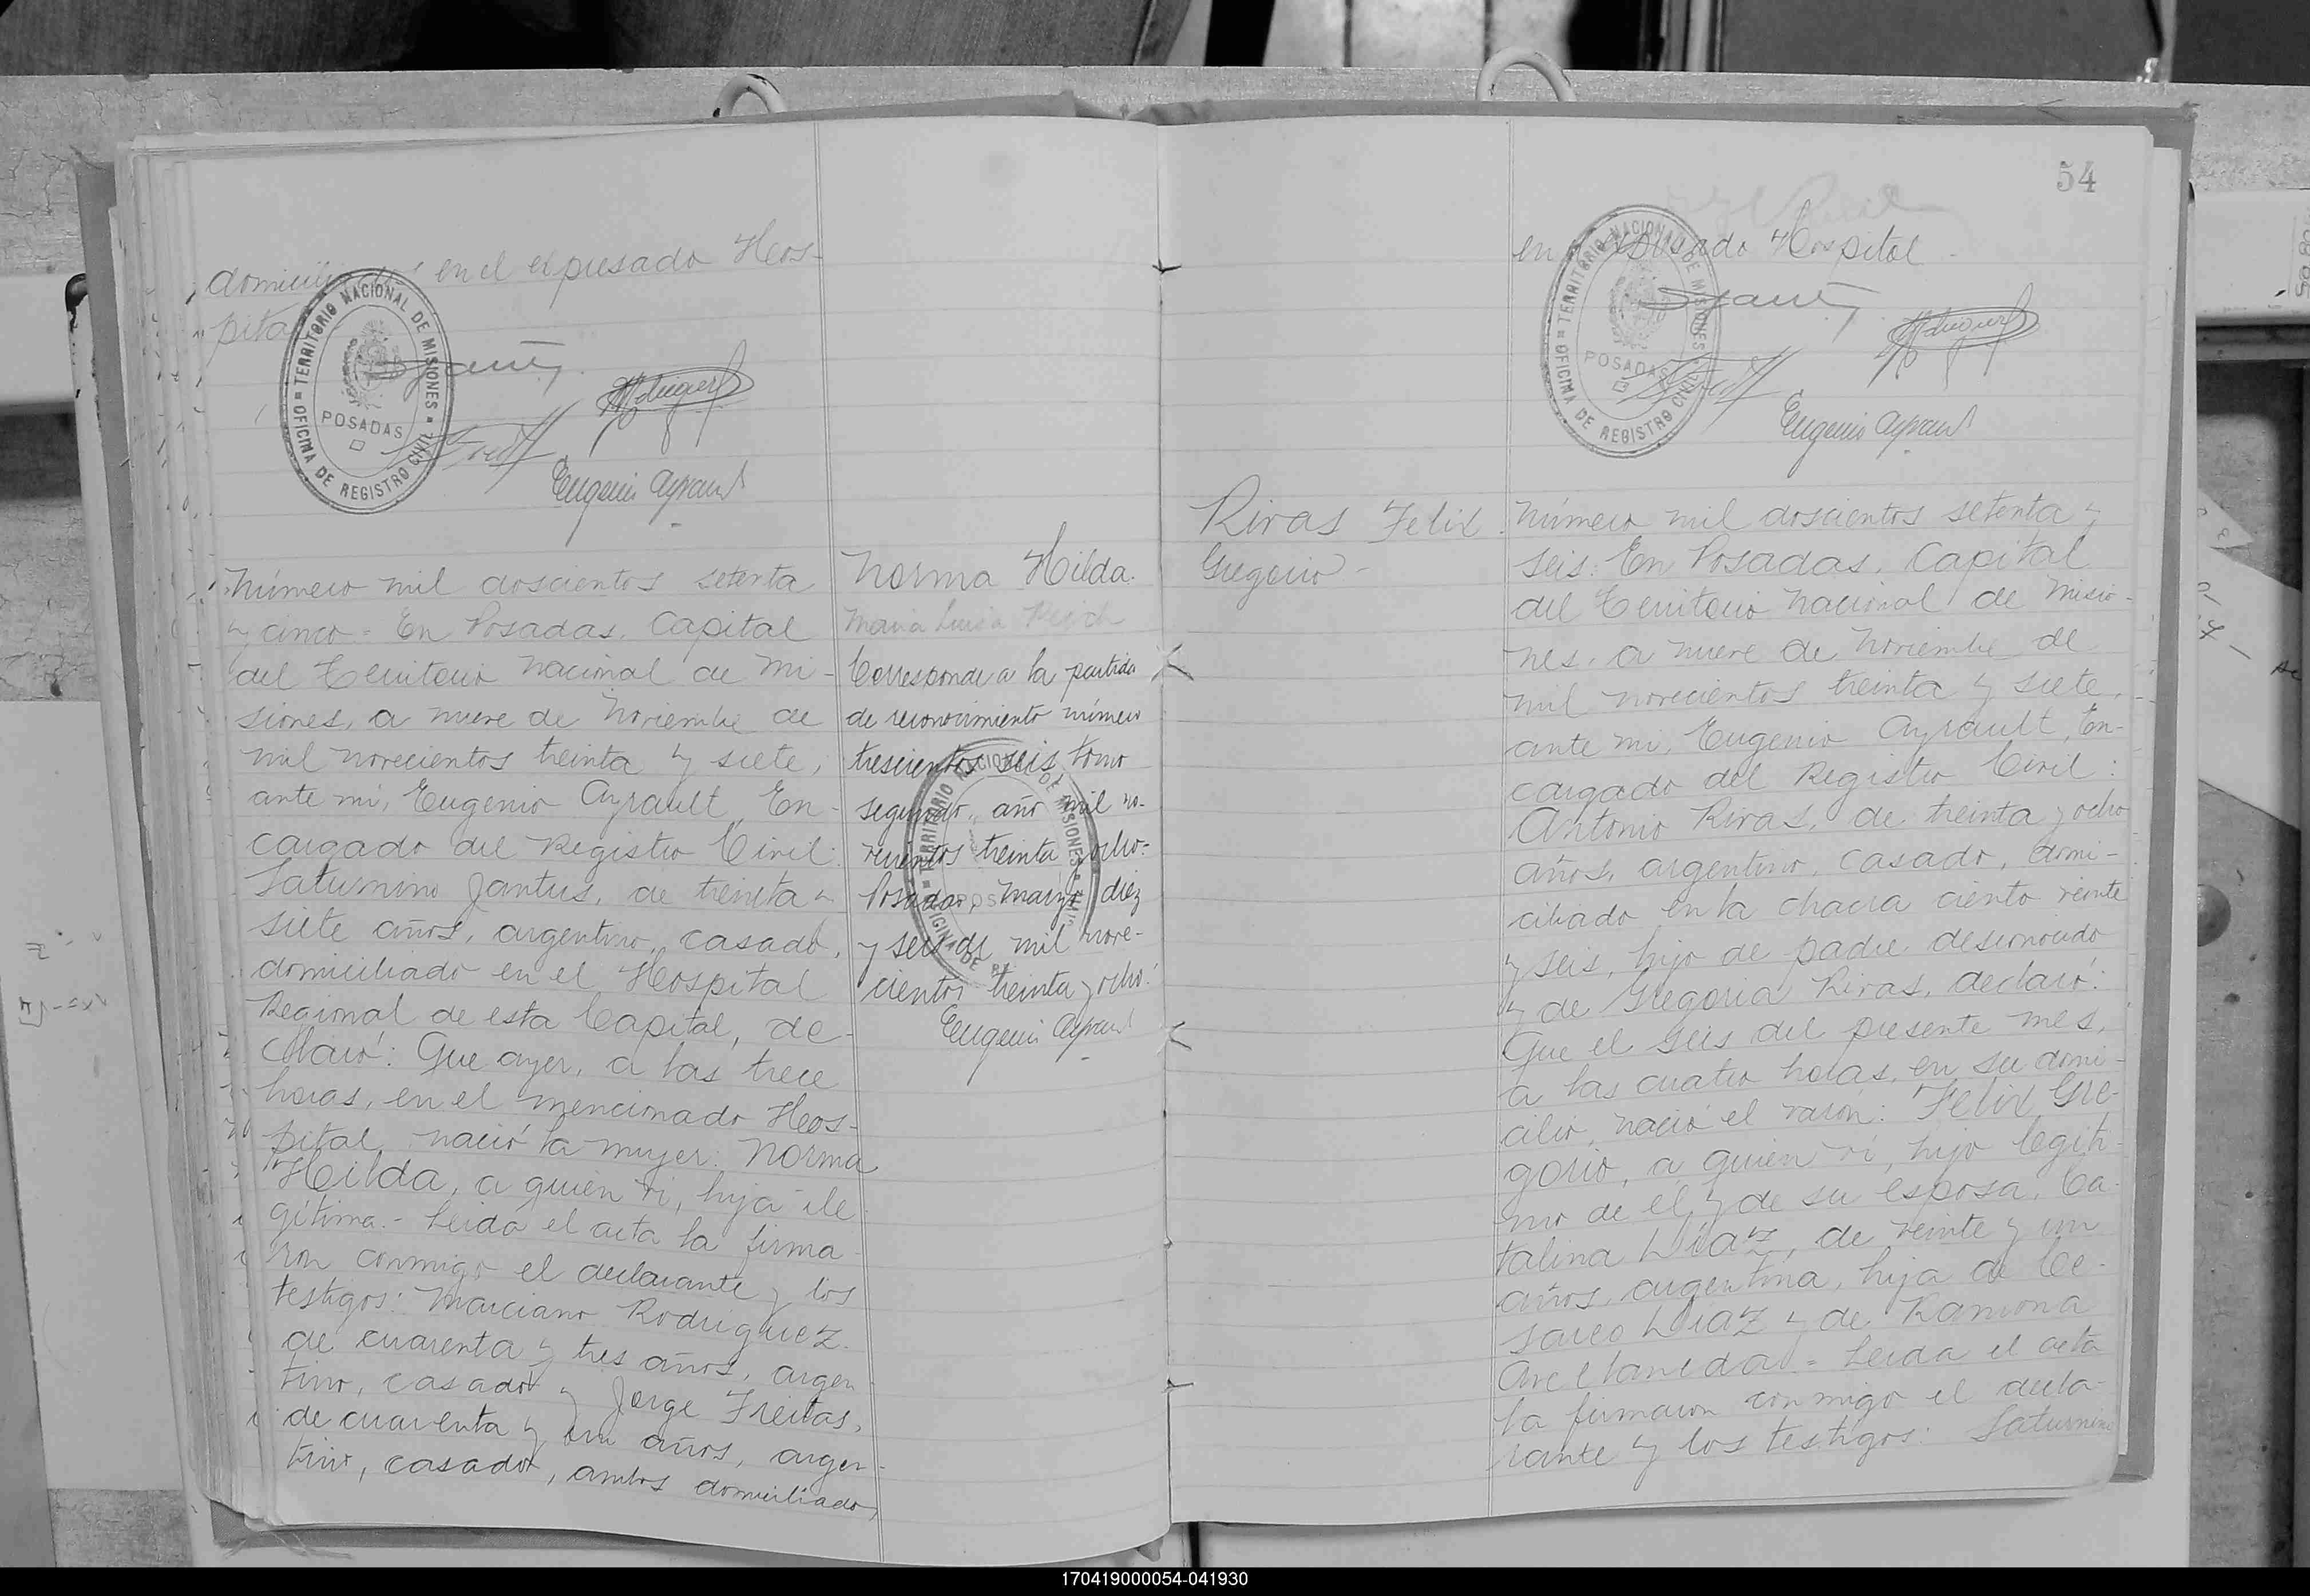 domiciliados en el expresado Hos-
pital
TERRITORIO NACIONAL DE MISIONES
OFICINA DE REGISTRO CIVIL
POSADAS
Eugenio Ayrault
Número mil doscientos setenta
y cinco = En Posadas, Capital
del Territorio Nacional de Mi-
siones, a nueve de Noviembre de
mil novecientos treinta y siete,
ante mi, Eugenio Ayrault, En-
cargado del Registro Civil:
Saturnino Jantus, de treinta y
siete años, argentino, casado,
domiciliado en el Hospital
Regional de esta Capital, de-
claró: Que ayer, a las trece
horas, en el mencionado Hos-
pital, nació la mujer: Norma
Hilda, a quien vi, hija ile-
gítima.- Leida el acta la firma-
ron conmigo el declarante y los
testigos: Marciano Rodriguez
de cuarenta y tres años, argen-
tino, casado y Jorge Freitas,
de cuarenta y un años, argen-
tino, casado, ambos domiciliados,
Norma Hilda.
Maria Luisa
Corresponde a la partida
de reconocimiento número
trescientos seis tomo
segundo, año mil no-
vecientos treinta y ocho=
Posadas, Marzo diez
y seis de mil nove-
cientos treinta y ocho.
TERRITORIO NACIONAL DE MISIONES
Eugenio Ayrault
54
en el expresado Hospital
TERRITORIO NACIONAL DE MISIONES
OFICINA DE REGISTRO CIVIL
POSADAS
Eugenio Ayrault
Rivas Felix
Gregorio -
Número mil doscientos setenta y
seis: En Posadas, Capital
del Territorio Nacional de Misio-
nes, a nueve de Noviembre de
mil novecientos treinta y siete,
ante mi, Eugenio Ayrault, En-
cargado del Registro Civil:
Antonio Rivas, de treinta y ocho
años, argentino, casado, domi-
ciliado en la chacra ciento veinte
y seis, hijo de padre desconocido
y de Gregoria Rivas, declaró:
Que el seis del presente mes,
a las cuatro horas, en su domi-
cilio, nació el varón: Felix Gre-
gorio, a quien vi, hijo legíti-
mo de el y de su esposa, Ca-
talina Diaz, de veinte y un
años, argentina, hija de Ce-
sareo Diaz y de Ramona
Avellaneda = Leida el acta
la firmaron conmigo el decla-
rante y los testigos: Saturnino
170419000054-041930